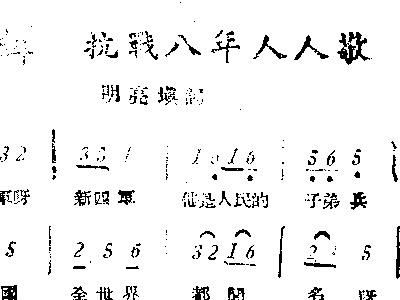 年 抗戰八年人人敬
明亮填詞
32 35 1 1 6 16 56 5
軍呀 新四軍 他是人民的 子弟兵
5 2 5 6 32 16 2 5
國 全世界 都聞 名呀